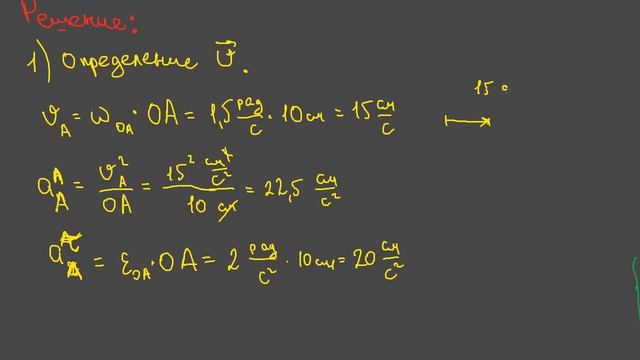 Решение:
1) Определение v⃗.
v_A = ω_OA · OA = 1,5 рад/с · 10 см = 15 см/с
15
a_A^n = v_A²/OA = 15² см²/с² / 10 см = 22,5 см/с²
a_A^τ = ε_OA · OA = 2 рад/с² · 10 см = 20 см/с²